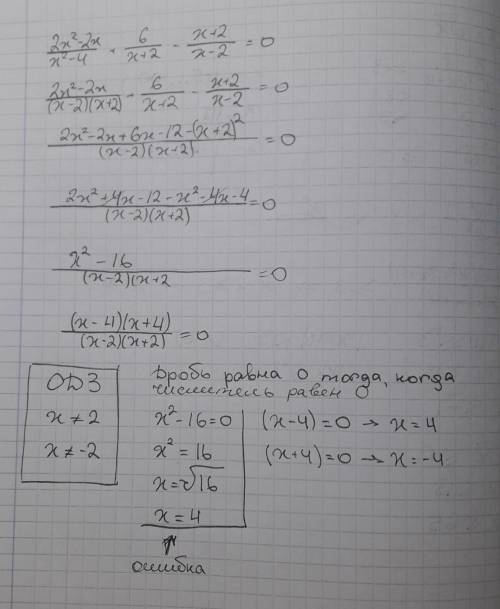 (2x²-2x)/(x²-4) + 6/(x+2) - (x+2)/(x-2) = 0
(2x²-2x)/((x-2)(x+2)) + 6/(x+2) - (x+2)/(x-2) = 0
(2x²-2x+6x-12-(x+2)²)/((x-2)(x+2)) = 0
(2x²+4x-12-x²-4x-4)/((x-2)(x+2)) = 0
(x²-16)/((x-2)(x+2) = 0
((x-4)(x+4))/((x-2)(x+2)) = 0
ОДЗ
x ≠ 2
x ≠ -2
Дробь равна 0 тогда, когда
числитель равен 0
x²-16=0
x² = 16
x=√16
x = 4
ошибка
(x-4)=0 → x=4
(x+4)=0 → x=-4